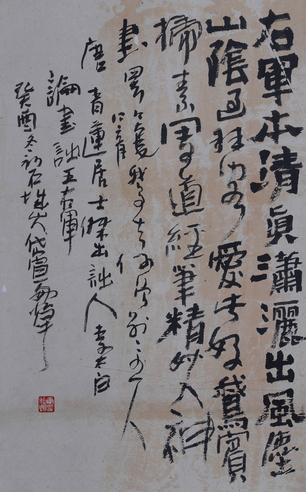 右軍本清真瀟灑出風塵
山陰過羽客愛此好鵝賓
掃素寫道經筆精妙入神
書罷籠鵝去何曾別主人
唐青蓮居士傑出詩人李太白
論書詠王右軍
癸酉冬石城